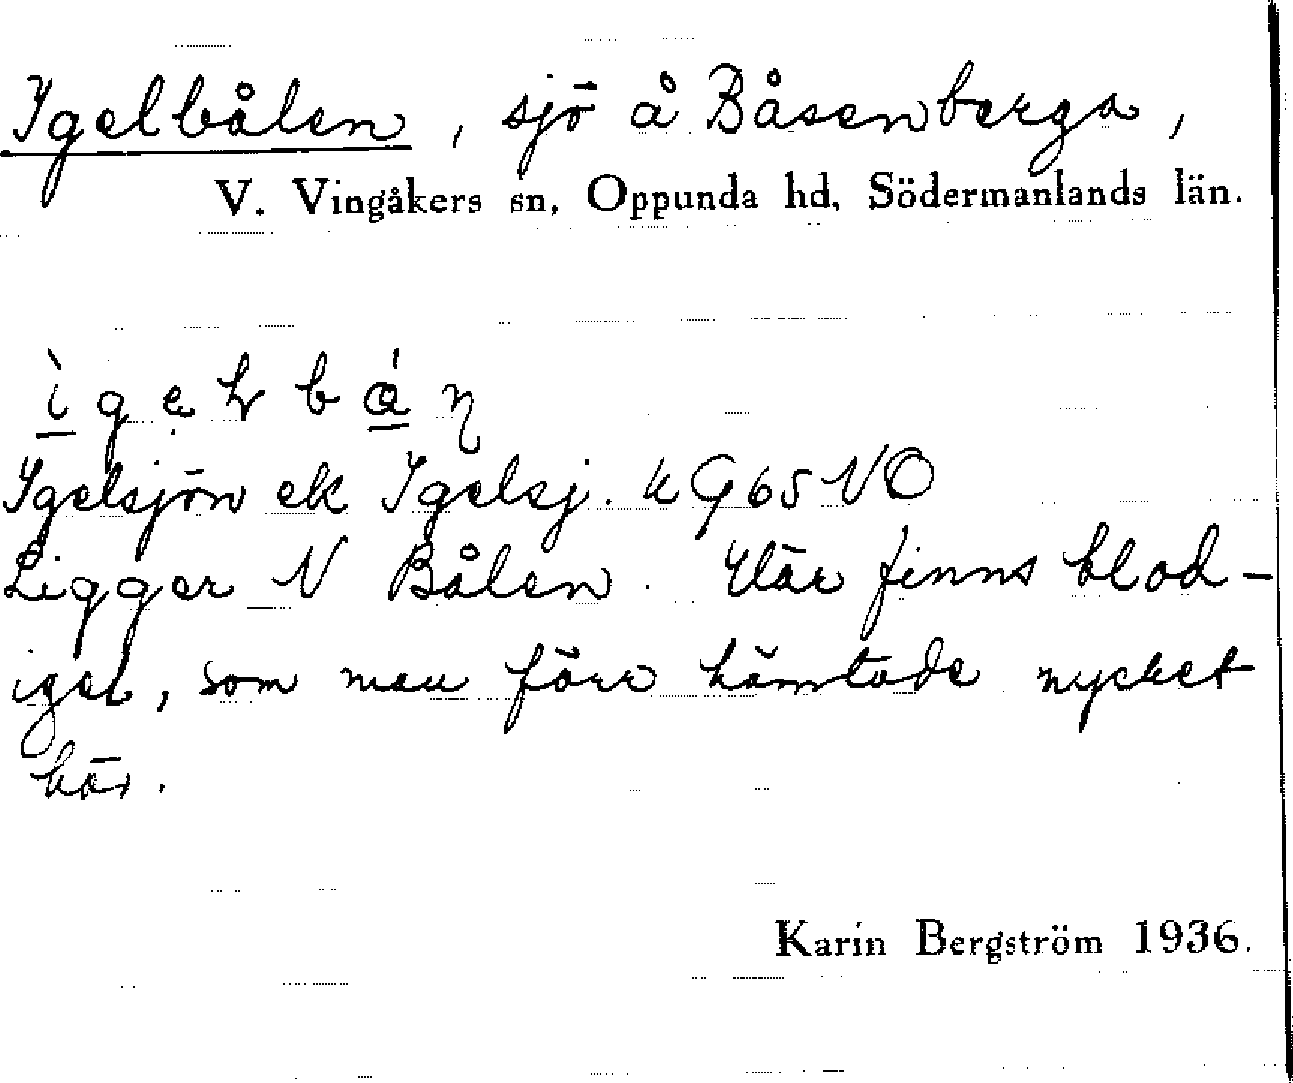 Igelbålen, sjö å Båsenberga,
V. Vingåkers sn, Oppunda hd, Södermanlands län.
Igelsjön ek Igelsj. k G65 NO
Ligger N Bålen. Här finns blod-
igel, som man förr hämtade mycket
här.
Karin Bergström 1936.